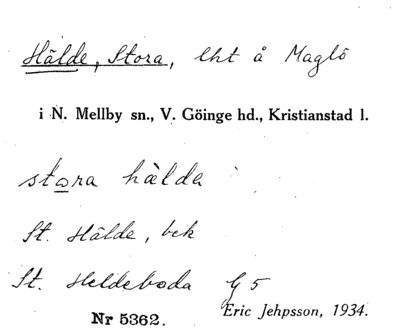 Hälde, Stora, lht å Maglö
i N. Mellby sn., V. Göinge hd., Kristianstad l.
stora hàlda
St. Hälde, bek
St. Heldeboda G 5
Eric Jehpsson, 1934.
Nr 5362.